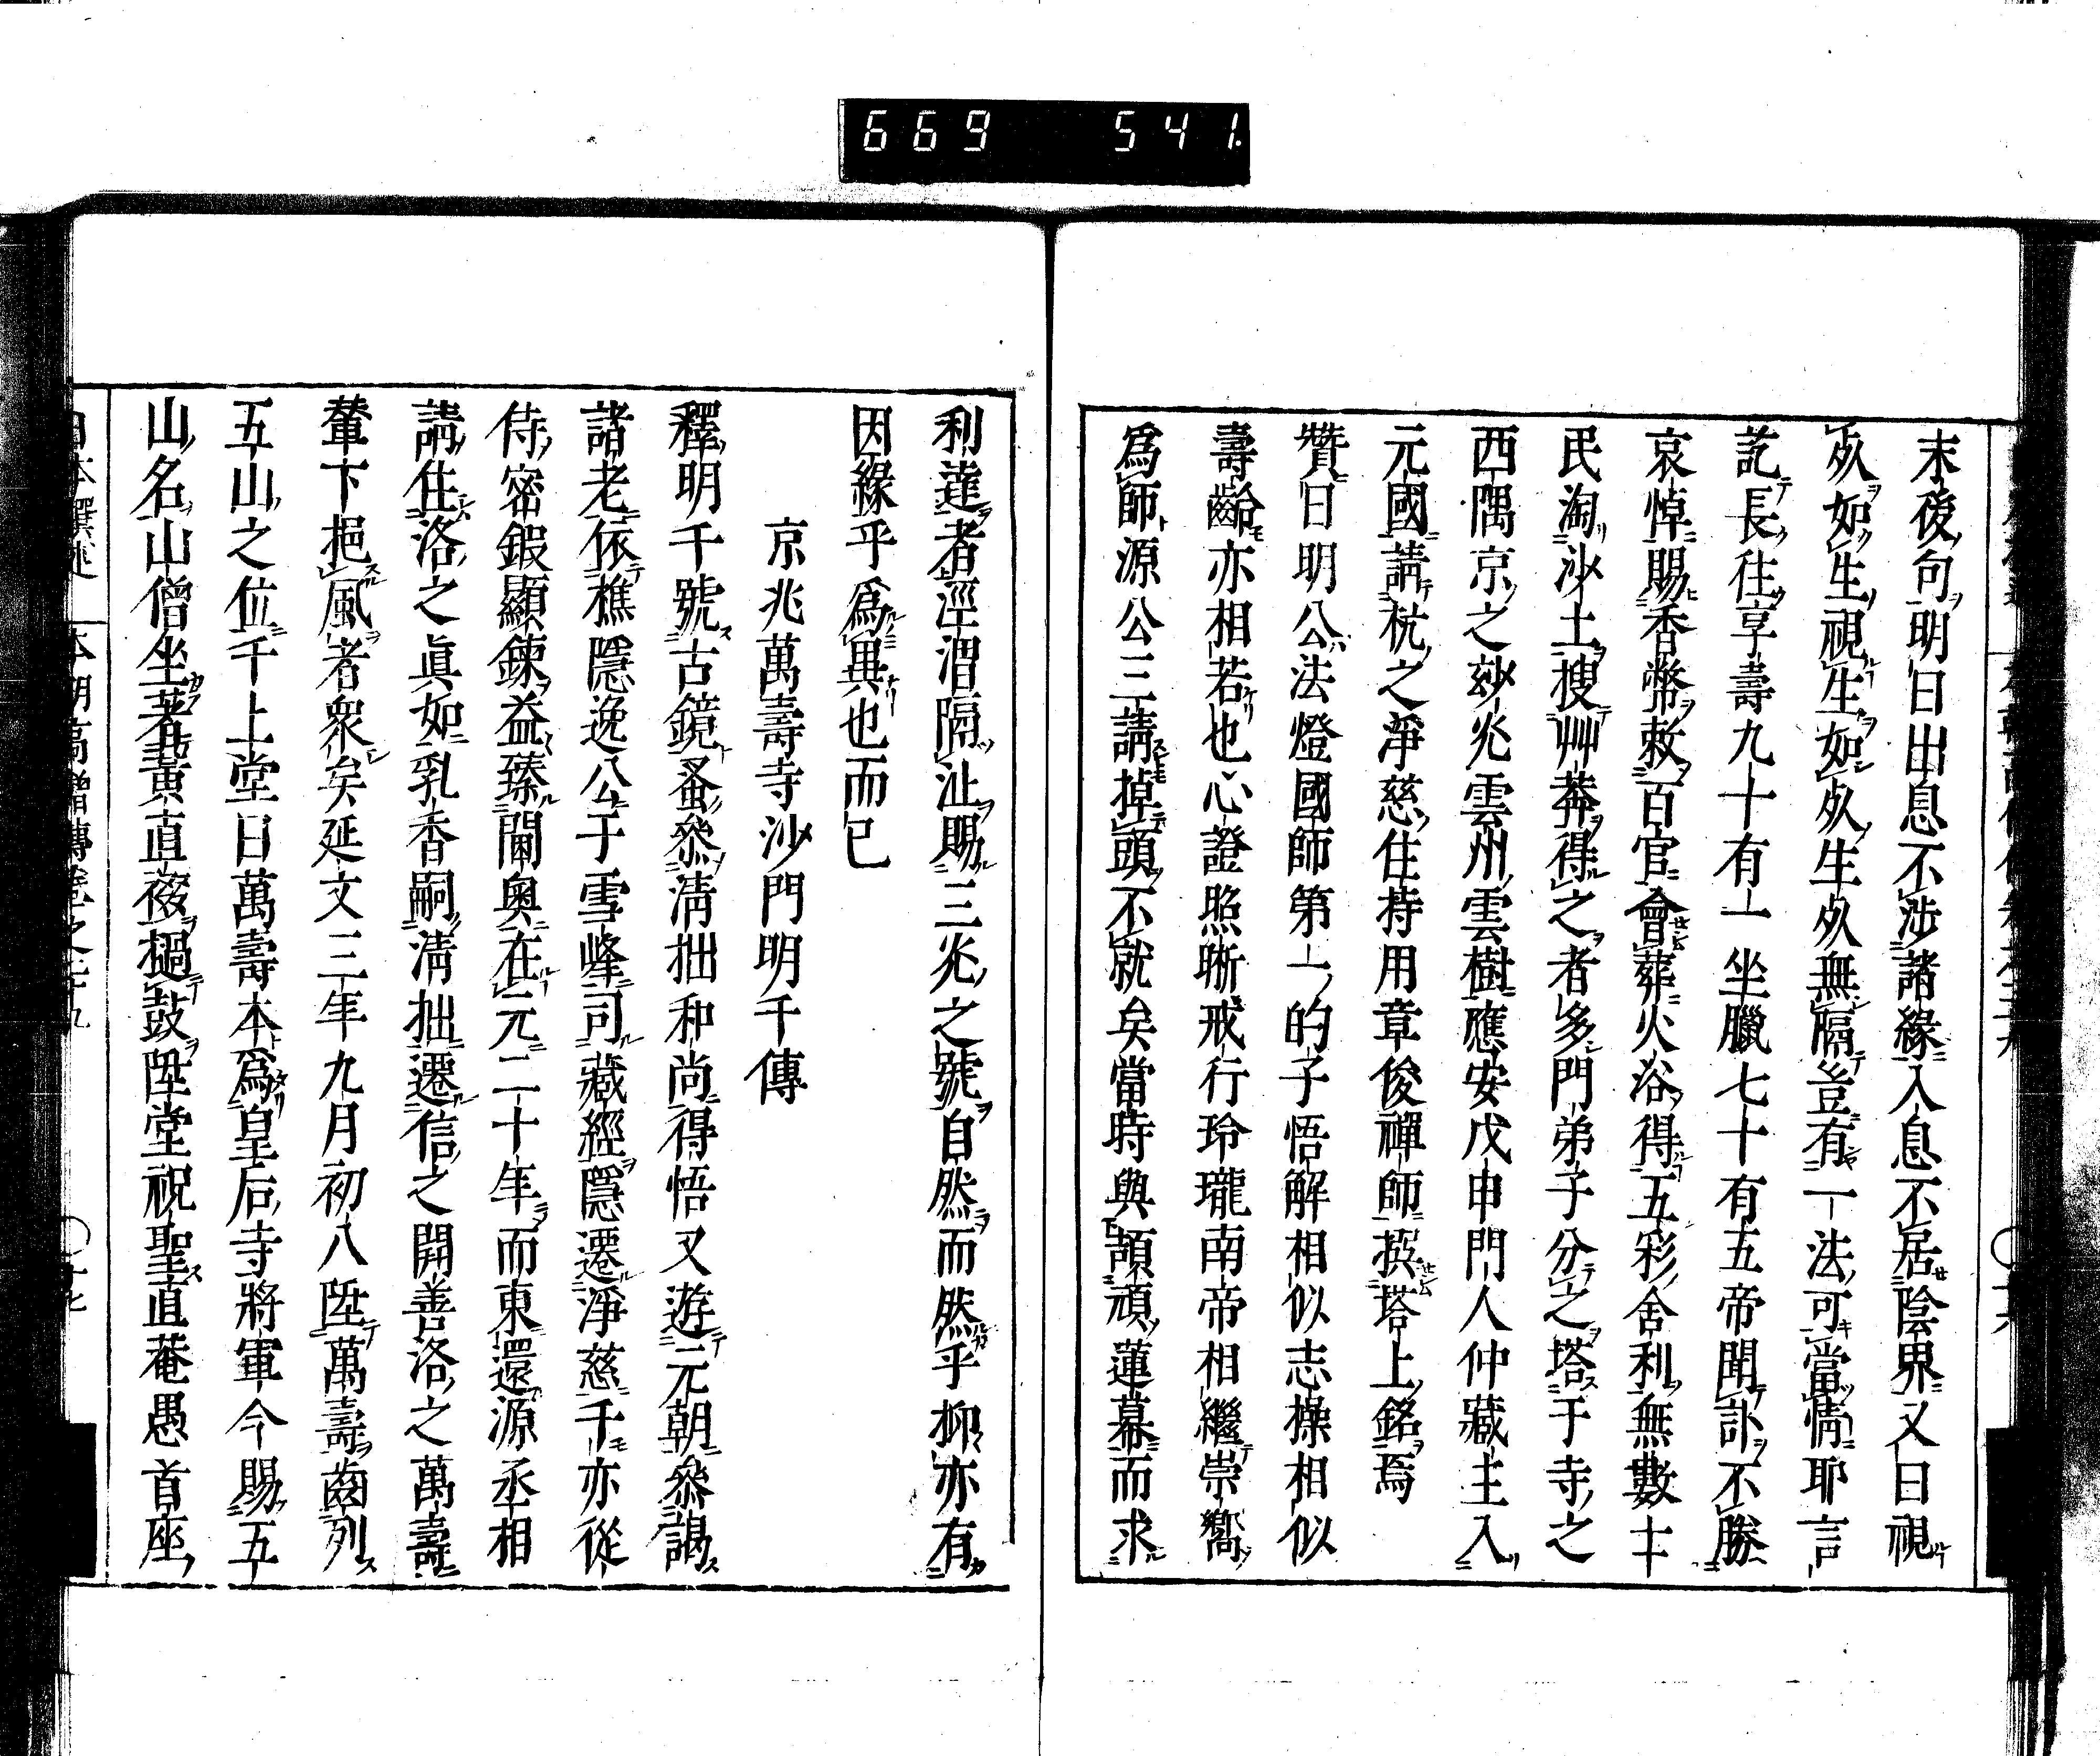 669 541.
末後句明曰出息不涉諸緣入息不居陰界又曰視
死如生視生如死生死無隔豈有一法可當情耶言
訖長往享壽九十有一坐臘七十有五帝聞訃不勝
哀悼賜香幣敕百官會葬火浴得五彩舍利無數士
民淘沙土搜艸莽得之者多門弟子分之塔于寺之
西隅京之玅光雲州雲樹應安戊申門人仲藏主入
元國請杭之淨慈住持用章俊禪師撰塔上銘焉
贊曰明公法燈國師第一的子悟解相似志操相似
壽齡亦相若也心證照晰戒行玲瓏南帝相繼崇嚮
爲師源公三請掉頭不就矣當時與頡頑蓮幕而求
利達者涇渭隔沚賜三光之號自然而然乎抑亦有
因緣乎爲異也而已
京兆萬壽寺沙門明千傳
釋明千號古鏡蚤參淸拙和尚得悟又遊元朝參謁
諸老依樵隱逸公于雪峰司藏經隱遷淨慈千亦從
侍密鍛顯鍊益臻閫奧在元二十年而東還源丞相
請住洛之眞如乳香嗣淸拙遷信之開善洛之萬壽
輦下挹風者衆矣延文三年九月初八陞萬壽齒列
五山之位千上堂曰萬壽本爲皇后寺將軍今賜五
山名山僧坐著黃直裰撾鼓陞堂祝聖直菴愚首座
日本撰述 本朝高僧傳卷之二十九 〇十七